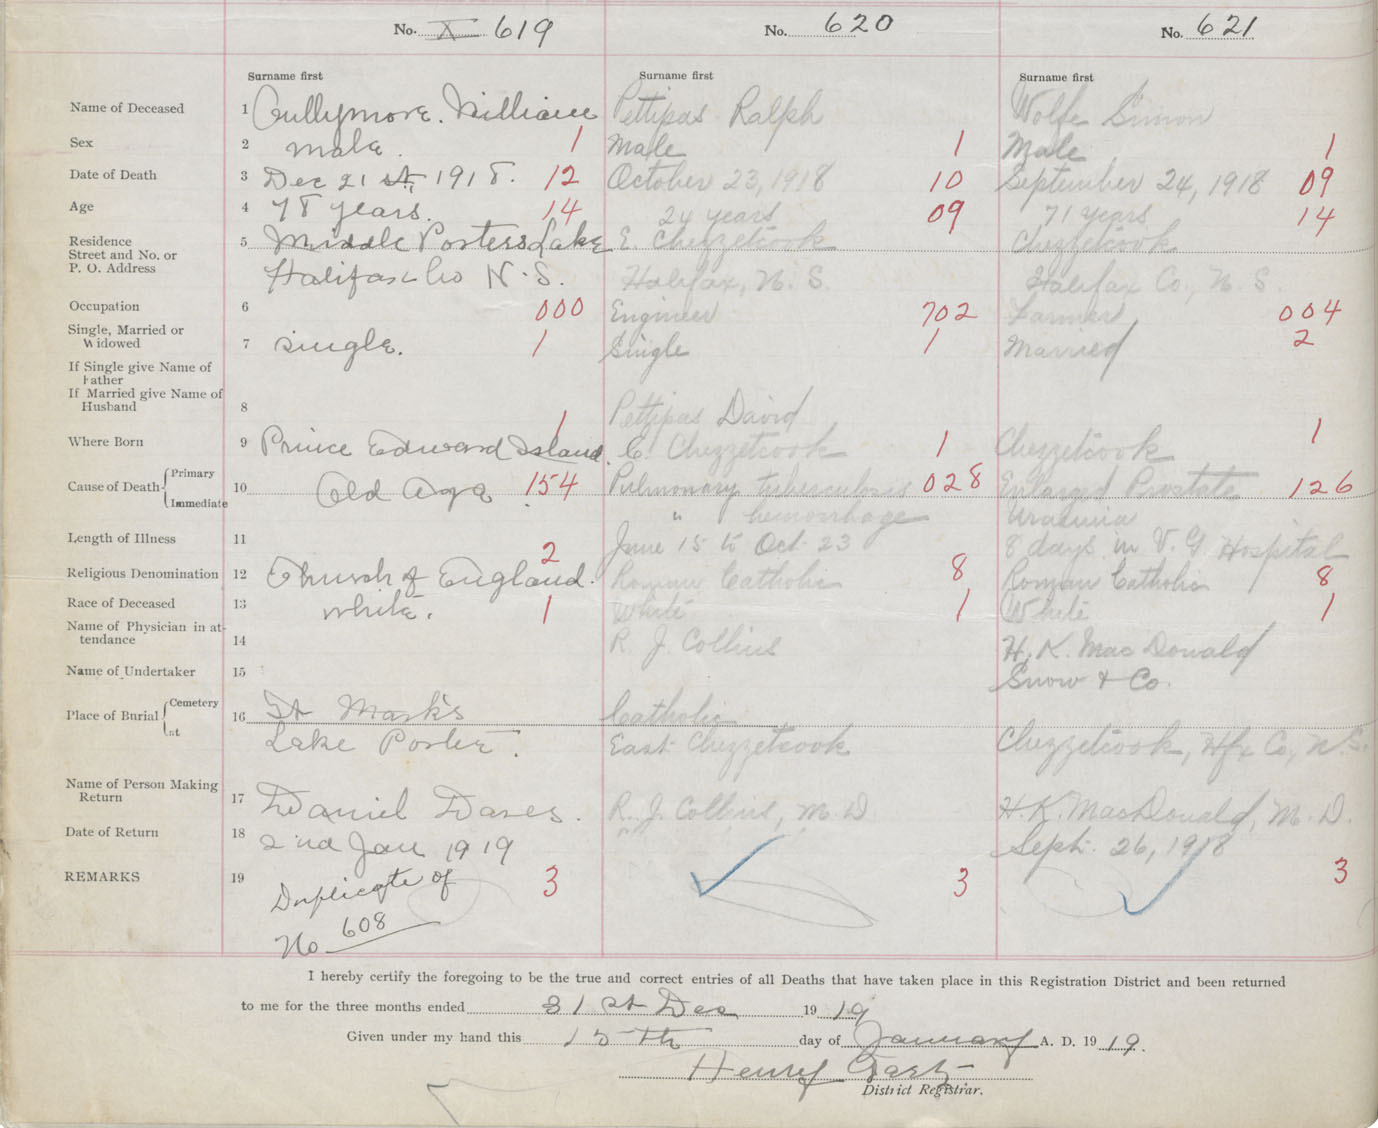 No. X 619 No. 620 No. 621
Surname first Surname first Surname first
Name of Deceased 1 Cullymore. William Pettipas Ralph Wolfe Simon
Sex 2 male. 1 Male 1 Male 1
Date of Death 3 Dec 21st, 1918. 12 October 23, 1918 10 September 24, 1918 09
Age 4 78 years. 14 24 years 09 71 years 14
Residence 5 Middle Porters Lake E. Chezzetcook Chezzetcook
Street and No. or
P. O. Address Halifax Co N.S. Halifax, N.S. Halifax Co., N.S.
Occupation 6 000 Engineer 702 Farmer 004
Single, Married or
Widowed 7 single. 1 Single 1 Married 2
If Single give Name of
Father
If Married give Name of
Husband 8 Pettipas David
Where Born 9 Prince Edward Island. 1 E. Chezzetcook 1 Chezzetcook 1
Cause of Death Primary 10 Old Age 154 Pulmonary tuberculosis 028 Enlarged Prostate 126
Immediate " hemorrhage Uraemia
Length of Illness 11 June 15 to Oct. 23 8 days in V. G. Hospital
Religious Denomination 12 Church of England. 2 Roman Catholic 8 Roman Catholic 8
Race of Deceased 13 white. 1 White 1 White 1
Name of Physician in at-
tendance 14 R. J. Collins H. K. MacDonald
Name of Undertaker 15 Snow & Co.
Place of Burial Cemetery 16 St Mark's Catholic
at Lake Porter. East Chezzetcook Chezzetcook, Hfx Co, N.S.
Name of Person Making
Return 17 Daniel Dares. R. J. Collins, M.D. H. K. MacDonald, M.D.
Date of Return 18 2nd Jan 1919 Sept. 26, 1918
REMARKS 19 Duplicate of 3 3 3
No 608
I hereby certify the foregoing to be the true and correct entries of all Deaths that have taken place in this Registration District and been returned
to me for the three months ended 31st Dec 19 19
Given under my hand this 15th day of January A. D. 19 19.
Henry
District Registrar.